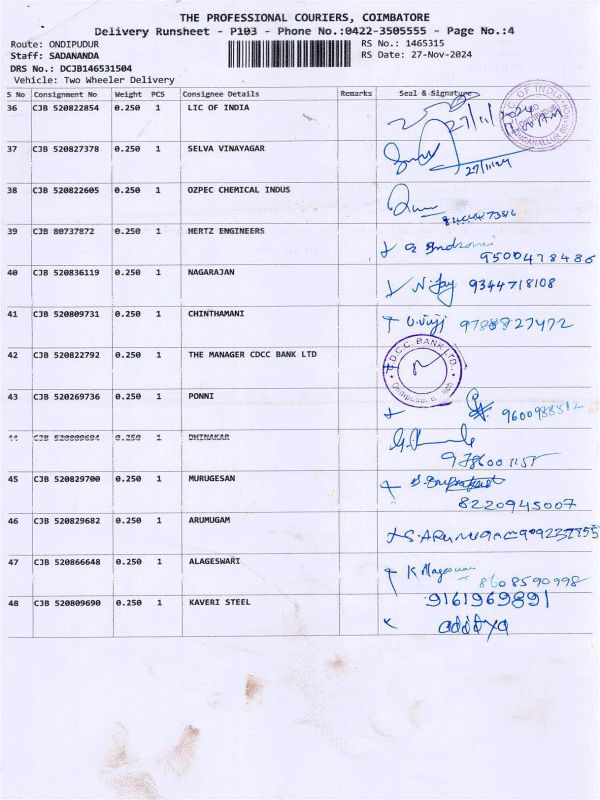 THE PROFESSIONAL COURIERS, COIMBATORE
Delivery Runsheet - P103 - Phone No.:0422-3505555 - Page No.:4
Route: ONDIPUDUR RS No.: 1465315
Staff: SADANANDA RS Date: 27-Nov-2024
DRS No.: DCJB146531504
Vehicle: Two Wheeler Delivery
S No Consignment No Weight PCS Consignee Details Remarks Seal & Signature
36 CJB 520822854 0.250 1 LIC OF INDIA 27/11/2024
37 CJB 520827378 0.250 1 SELVA VINAYAGAR 27/11/24
38 CJB 520822605 0.250 1 OZPEC CHEMICAL INDUS
39 CJB 80737872 0.250 1 HERTZ ENGINEERS 9500478486
40 CJB 520836119 0.250 1 NAGARAJAN N. Jay 9344718108
41 CJB 520809731 0.250 1 CHINTHAMANI U. Viji 9788827472
42 CJB 520822792 0.250 1 THE MANAGER CDCC BANK LTD C.D.C.C. BANK LTD.,
43 CJB 520269736 0.250 1 PONNI
44 CJB 520809694 0.250 1 DHINAKAR
45 CJB 520829700 0.250 1 MURUGESAN 8220945007
46 CJB 520829682 0.250 1 ARUMUGAM S. ARUMUGAM
47 CJB 520866648 0.250 1 ALAGESWARI K Alageswari 8608590998
48 CJB 520809690 0.250 1 KAVERI STEEL 9161969891
adddya